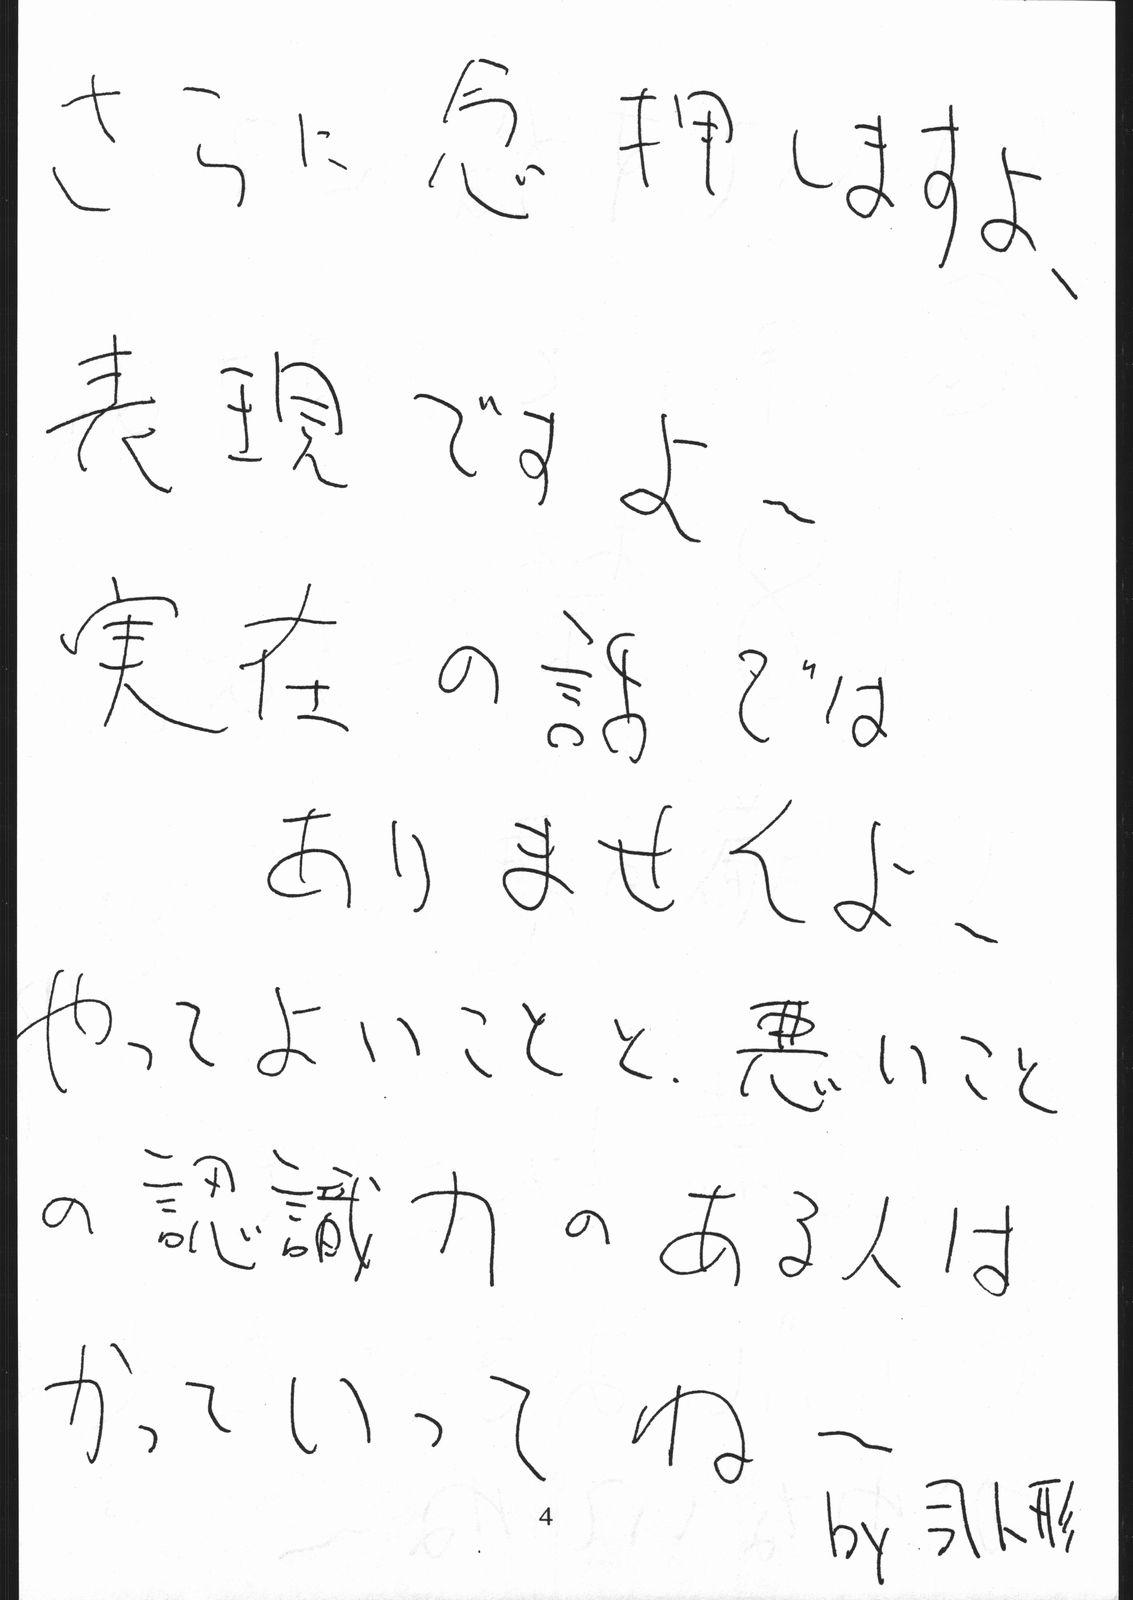 さらに念押しますよ、
表現ですよ~
実在の話では
ありませんよ~
やってよいことと、悪いこと
の認識力のある人は
かっていってね~
by 引人形
4